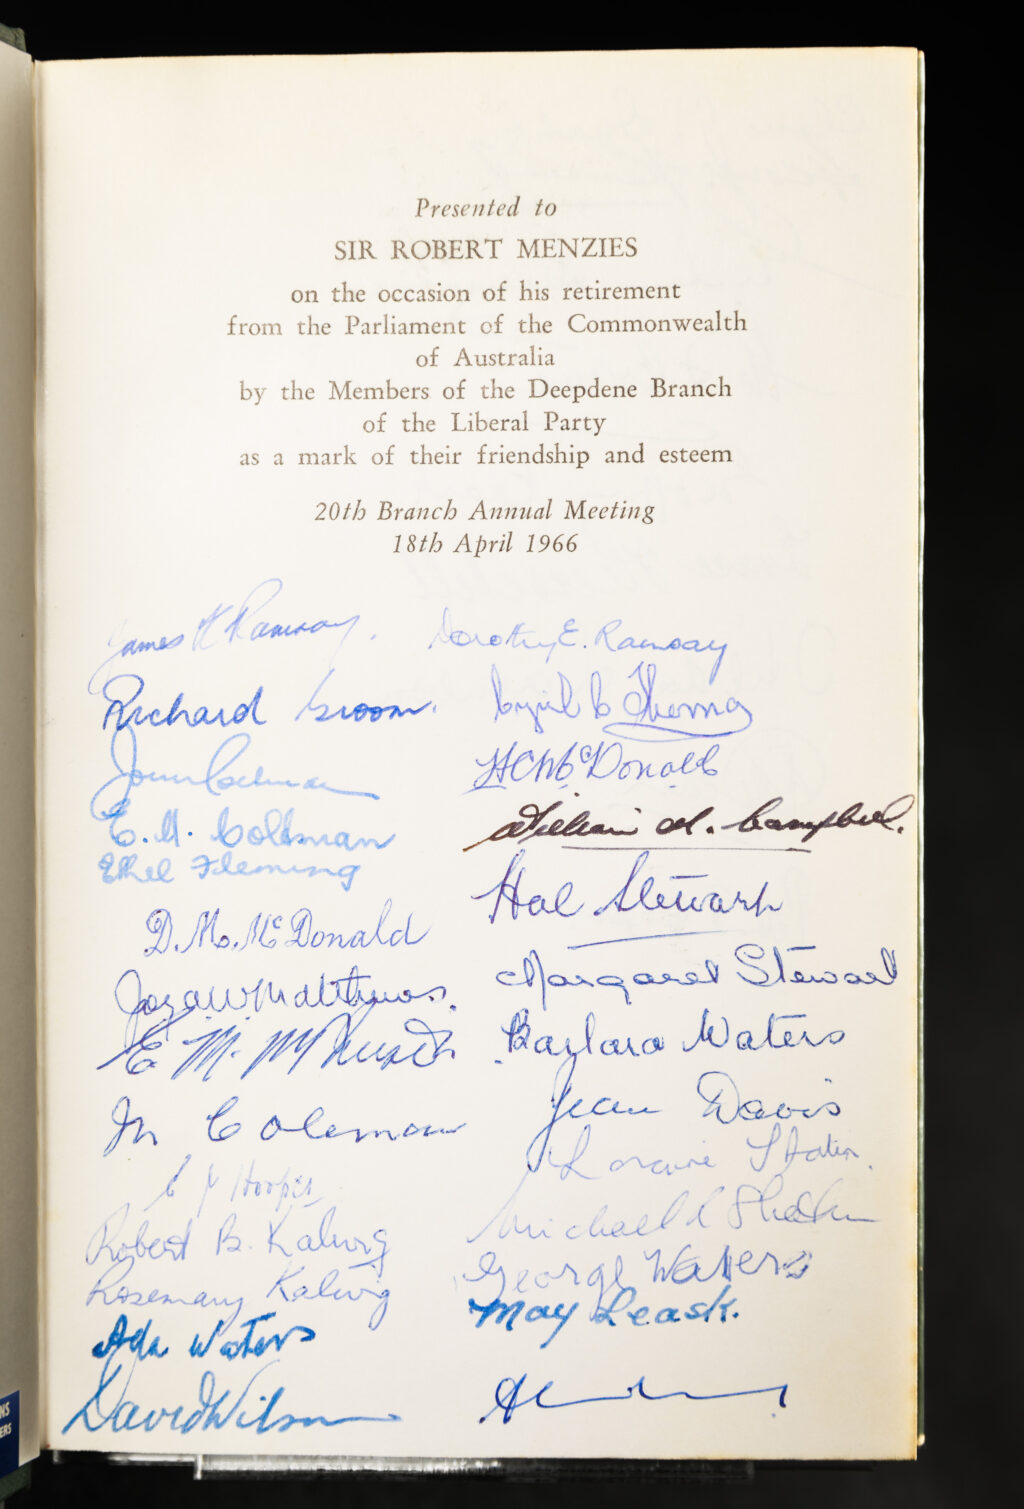 Presented to
SIR ROBERT MENZIES
on the occasion of his retirement
from the Parliament of the Commonwealth
of Australia
by the Members of the Deepdene Branch
of the Liberal Party
as a mark of their friendship and esteem
20th Branch Annual Meeting
18th April 1966
James H Ramsay. Dorothy E. Ramsay
Richard Groom. Cyril C Thomas
John Coleman H C McDonald
E. M. Coleman William H. Campbell.
Ethel Fleming
Hal Stewart
D. M. McDonald
Margaret Stewart
E. M.
Barbara Waters
M Coleman Jean Davis
Hooper Loraine
Robert B. Kalwig Michael
Rosemary Kalwig George Waters
Ada Waters May Leask.
David Wilson
NS
ERS